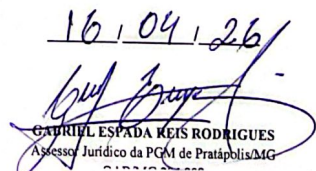 16 / 04 / 26
GABRIEL ESPADA REIS RODRIGUES
Assessor Jurídico da PGM de Pratápolis/MG